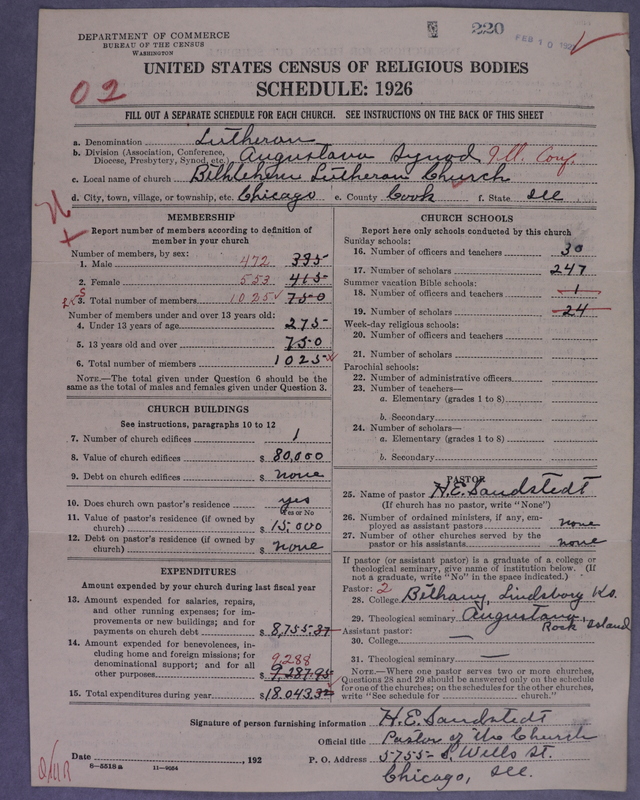 220
FEB 10 192
DEPARTMENT OF COMMERCE
BUREAU OF THE CENSUS
WASHINGTON
UNITED STATES CENSUS OF RELIGIOUS BODIES
SCHEDULE: 1926
02
FILL OUT A SEPARATE SCHEDULE FOR EACH CHURCH. SEE INSTRUCTIONS ON THE BACK OF THIS SHEET
a. Denomination Lutheran
b. Division (Association, Conference, Diocese, Presbytery, Synod, etc.) Augustana Synod Ill. Conf.
c. Local name of church Bethlehem Lutheran Church
d. City, town, village, or township, etc. Chicago e. County Cook f. State Ill
MEMBERSHIP
Report number of members according to definition of
member in your church
Number of members, by sex:
1. Male 472 335
2. Female 553 415
3. Total number of members 1025 750
Number of members under and over 13 years old:
4. Under 13 years of age 275
5. 13 years old and over 750
6. Total number of members 1025
NOTE.—The total given under Question 6 should be the
same as the total of males and females given under Question 3.
CHURCH BUILDINGS
See instructions, paragraphs 10 to 12
7. Number of church edifices 1
8. Value of church edifices $ 80,000
9. Debt on church edifices $ none
10. Does church own pastor's residence yes
Yes or No
11. Value of pastor's residence (if owned by
church) $ 15,000
12. Debt on pastor's residence (if owned by
church) $ none
EXPENDITURES
Amount expended by your church during last fiscal year
13. Amount expended for salaries, repairs,
and other running expenses; for im-
provements or new buildings; and for
payments on church debt $ 8,755.37
14. Amount expended for benevolences, in-
cluding home and foreign missions; for
denominational support; and for all
other purposes $ 9,287.95
9,288
15. Total expenditures during year $ 18.043.32
CHURCH SCHOOLS
Report here only schools conducted by this church
Sunday schools:
16. Number of officers and teachers 30
17. Number of scholars 247
Summer vacation Bible schools:
18. Number of officers and teachers 1
19. Number of scholars 24
Week-day religious schools:
20. Number of officers and teachers
21. Number of scholars
Parochial schools:
22. Number of administrative officers
23. Number of teachers—
a. Elementary (grades 1 to 8)
b. Secondary
24. Number of scholars—
a. Elementary (grades 1 to 8)
b. Secondary
PASTOR
25. Name of pastor H.E. Sandstedt
(If church has no pastor, write "None")
26. Number of ordained ministers, if any, em-
ployed as assistant pastors none
27. Number of other churches served by the
pastor or his assistants none
If pastor (or assistant pastor) is a graduate of a college or
theological seminary, give name of institution below. (If
not a graduate, write "No" in the space indicated.)
Pastor: 2
28. College Bethany, Lindsborg Ks.
29. Theological seminary Augustana, Rock Island
Assistant pastor:
30. College —
31. Theological seminary —
NOTE.—Where one pastor serves two or more churches,
Questions 28 and 29 should be answered only on the schedule
for one of the churches; on the schedules for the other churches,
write "See schedule for church."
Signature of person furnishing information H.E. Sandstedt
Official title Pastor of the Church
Date , 192 P. O. Address 5755 S. Wells St.
8—5518 a 11—9054
Chicago, Ill.